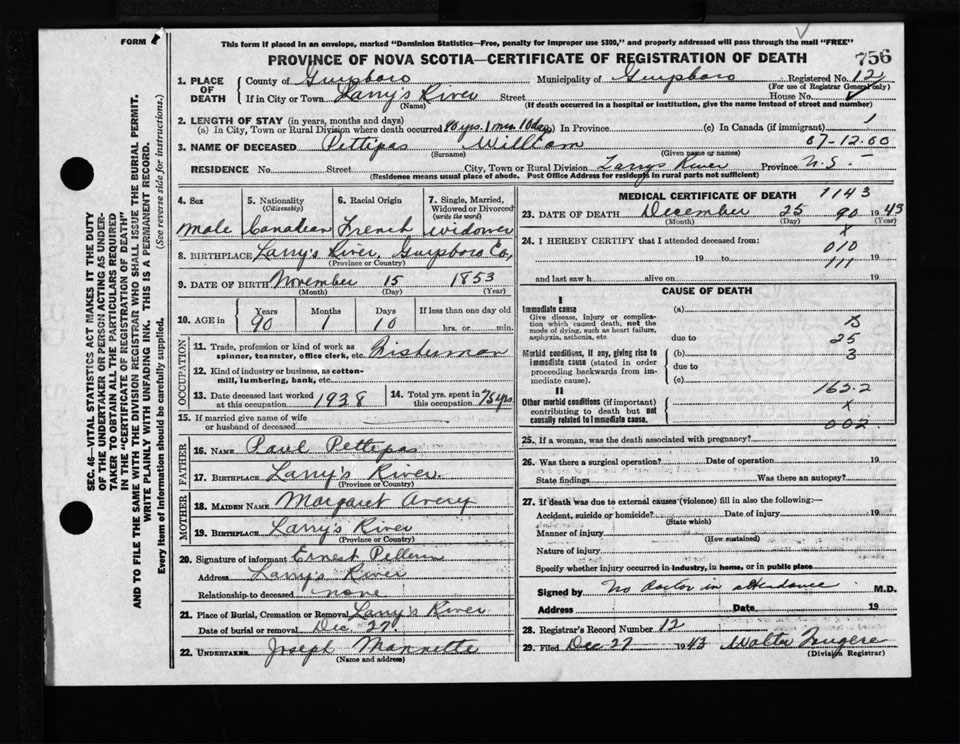 FORM
This form if placed in an envelope, marked "Dominion Statistics—Free, penalty for improper use $300," and properly addressed will pass through the mail "FREE"
PROVINCE OF NOVA SCOTIA—CERTIFICATE OF REGISTRATION OF DEATH
756
1. PLACE OF DEATH
County of Guysboro Municipality of Guysboro Registered No. 12
(For use of Registrar General only)
If in City or Town Larry's River Street House No.
(Name) (If death occurred in a hospital or institution, give the name instead of street and number)
2. LENGTH OF STAY (in years, months and days)
(a) In City, Town or Rural Division where death occurred 90 yrs. 1 mon. 10 days (b) In Province (c) In Canada (if immigrant) 1
3. NAME OF DECEASED Pettipas William 07-12.60
(Surname) (Given name or names)
RESIDENCE No. Street City, Town or Rural Division Larrys River Province N.S.
(Residence means usual place of abode. Post Office Address for residents in rural parts not sufficient)
4. Sex
Male
5. Nationality (Citizenship)
Canadian
6. Racial Origin
French
7. Single, Married, Widowed or Divorced (write the word)
Widower
8. BIRTHPLACE Larry's River, Guysboro Co,
(Province or Country)
9. DATE OF BIRTH November 15 1853
(Month) (Day) (Year)
10. AGE in Years Months Days If less than one day old
90 1 10 hrs. or min.
OCCUPATION
11. Trade, profession or kind of work as spinner, teamster, office clerk, etc. Fisherman
12. Kind of industry or business, as cotton-mill, lumbering, bank, etc.
13. Date deceased last worked at this occupation 1938
14. Total yrs. spent in this occupation 75 yrs
15. If married give name of wife or husband of deceased
FATHER
16. NAME Paul Pettipas
17. BIRTHPLACE Larry's River.
(Province or Country)
MOTHER
18. MAIDEN NAME Margaret Avery
19. BIRTHPLACE Larry's River
(Province or Country)
20. Signature of informant Ernest Pellerin
Address Larry's River
Relationship to deceased none
21. Place of Burial, Cremation or Removal Larry's River
Date of burial or removal Dec 27.
22. UNDERTAKER Joseph Mannette
(Name and address)
MEDICAL CERTIFICATE OF DEATH 1143
23. DATE OF DEATH December 25 90 1943
(Month) (Day) (Year)
24. I HEREBY CERTIFY that I attended deceased from: x
010
19 to 111 19
and last saw h alive on 19
CAUSE OF DEATH
I
Immediate cause
Give disease, injury or complication which caused death, not the mode of dying, such as heart failure, asphyxia, asthenia, etc.
(a)
due to 25
Morbid conditions, if any, giving rise to immediate cause (stated in order proceeding backwards from immediate cause).
(b) 3
due to
(c)
II
162.2
Other morbid conditions (if important) contributing to death but not causally related to immediate cause.
x
002.
25. If a woman, was the death associated with pregnancy?
26. Was there a surgical operation? Date of operation 19
State findings Was there an autopsy?
27. If death was due to external causes (violence) fill in also the following:—
Accident, suicide or homicide? Date of injury 19
(State which)
Manner of injury
(How sustained)
Nature of injury
Specify whether injury occurred in industry, in home, or in public place
Signed by No doctor in attendance M.D.
Address Date 19
28. Registrar's Record Number 12
29. Filed Dec 27 1943 Walter Fougere
(Division Registrar)
SEC. 46—VITAL STATISTICS ACT MAKES IT THE DUTY
OF THE UNDERTAKER OR PERSON ACTING AS UNDERTAKER
TO OBTAIN ALL THE PARTICULARS REQUIRED
IN THE "CERTIFICATE OF REGISTRATION OF DEATH"
AND TO FILE THE SAME WITH THE DIVISION REGISTRAR WHO SHALL ISSUE THE BURIAL PERMIT.
WRITE PLAINLY WITH UNFADING INK. THIS IS A PERMANENT RECORD.
Every item of information should be carefully supplied. (See reverse side for instructions.)